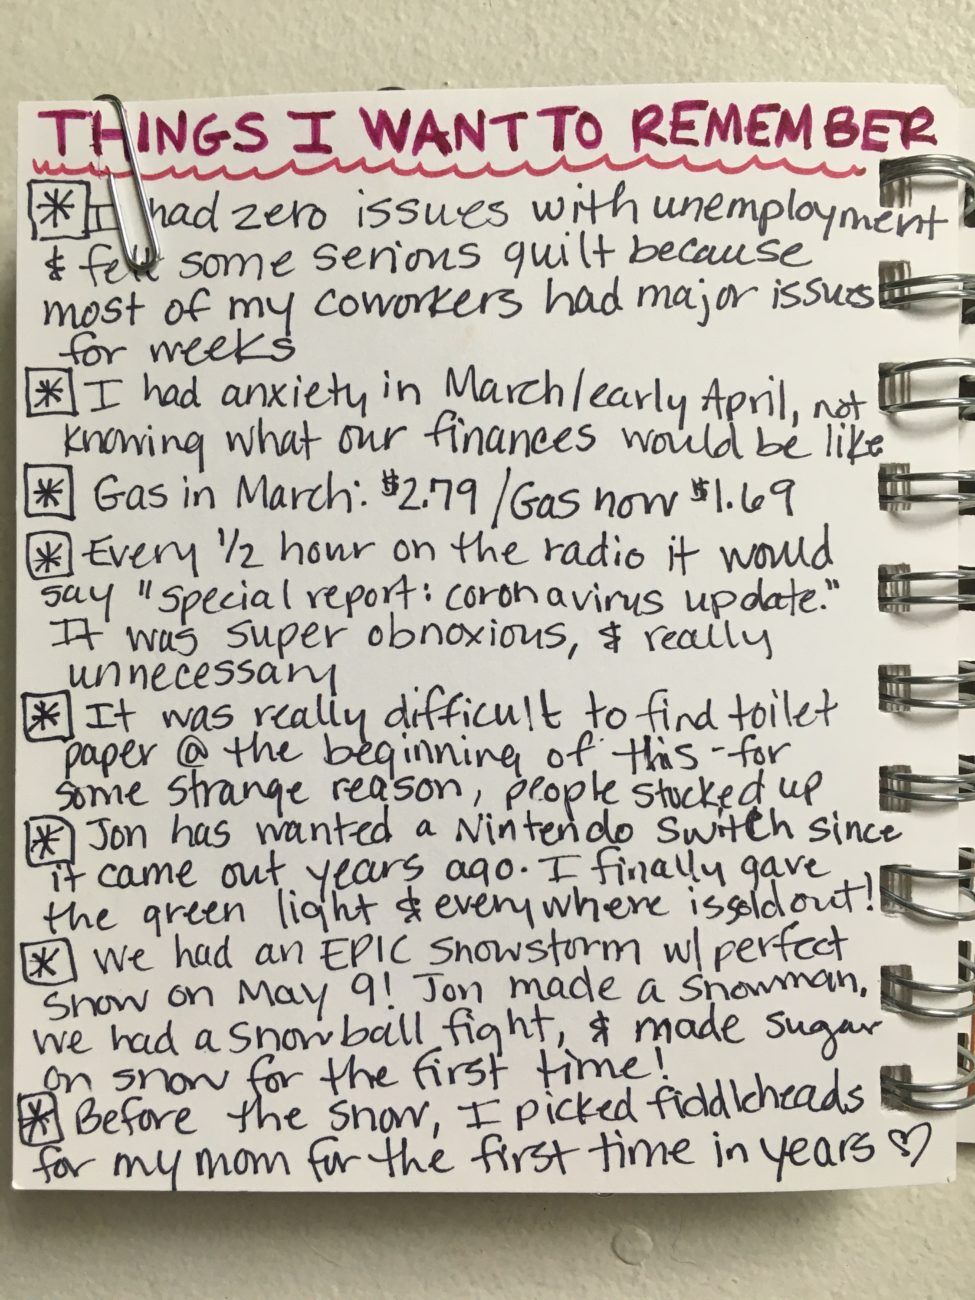 THINGS I WANT TO REMEMBER
* I had zero issues with unemployment
& felt some serious guilt because
most of my coworkers had major issues
for weeks
* I had anxiety in March/early April, not
knowing what our finances would be like
* Gas in March: $2.79 / Gas now $1.69
* Every 1/2 hour on the radio it would
say "special report: coronavirus update."
It was super obnoxious, & really
unnecessary
* It was really difficult to find toilet
paper @ the beginning of this - for
some strange reason, people stocked up
* Jon has wanted a Nintendo Switch since
it came out years ago. I finally gave
the green light & everywhere is sold out!
* We had an EPIC snowstorm w/ perfect
snow on May 9! Jon made a snowman,
we had a snowball fight, & made sugar
on snow for the first time!
* Before the snow, I picked fiddleheads
for my mom for the first time in years ♡